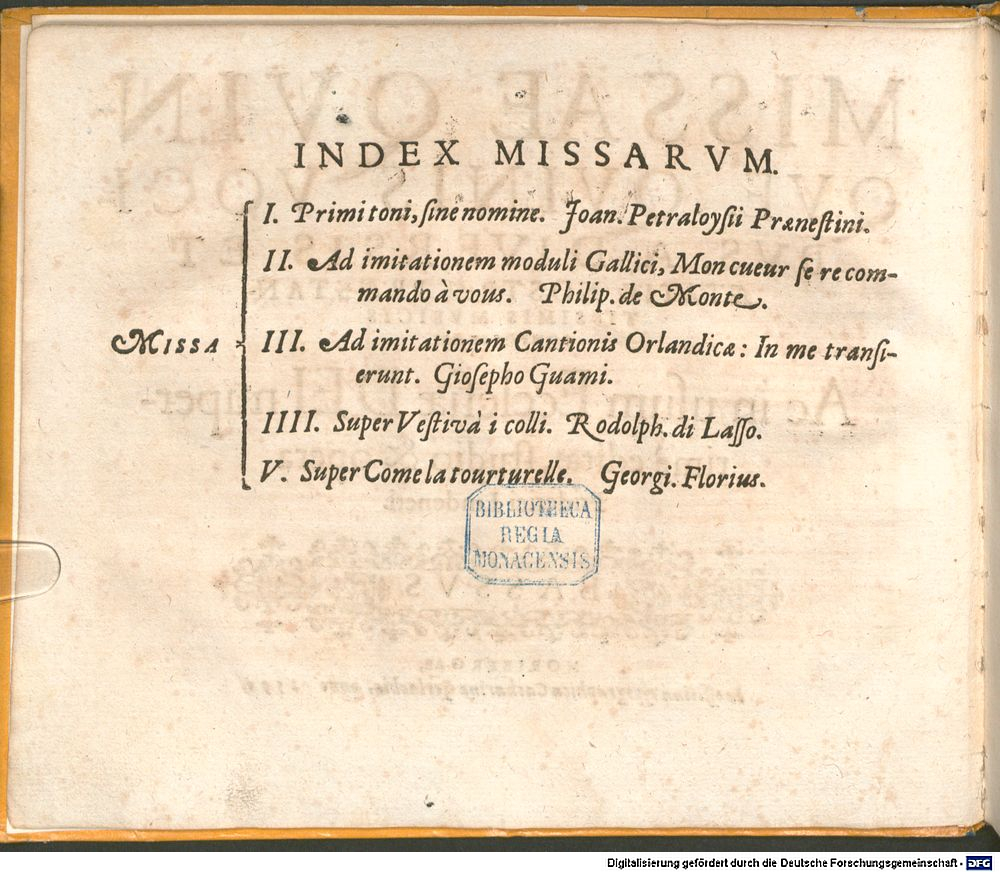 INDEX MISSARVM.
I. Primi toni, ſine nomine. Joan. Petraloyſii Præneſtini.
II. Ad imitationem moduli Gallici, Mon cueur ſe recom-
mando à vous. Philip. de Monte.
MISSA
III. Ad imitationem Cantionis Orlandicæ: In me tranſi-
erunt. Gioſepho Guami.
IIII. Super Veſtivà i colli. Rodolph. di Laſſo.
V. Super Come la tourturelle. Georgi. Florius.
BIBLIOTHECA
REGIA
MONACENSIS
Digitalisierung gefördert durch die Deutsche Forschungsgemeinschaft - DFG